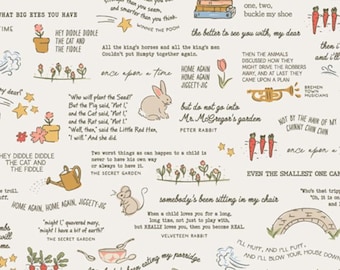 WHAT BIG EYES YOU HAVE
smarter than you think.
WINNIE THE POOH
one, two,
buckle my shoe
HEY DIDDLE DIDDLE
THE CAT AND
THE FIDDLE
All the king's horses and all the king's men
Couldn't put Humpty together again.
the better to see you with, my dear
once upon a time
THEN THE ANIMALS
DISCUSSED HOW THEY
MIGHT DRIVE THE ROBBERS
AWAY, AND AT LAST THEY
CAME UPON A PLAN
BREMEN
TOWN
MUSICIANS
HOME AGAIN
HOME AGAIN
JIGGETY-JIG
my dear
"Who will plant the Seed?"
But the Pig said, "Not I,"
and the Cat said, "Not I,"
and the Rat said, "Not I."
"Well, then," said the Little Red Hen,
"I will." And she did.
but do not go into
Mr. McGregor's garden
PETER RABBIT
NOT BY THE HAIR OF MY
CHINNY CHIN CHIN
HEY DIDDLE DIDDLE
THE CAT AND
THE FIDDLE
Two worst things as can happen to a child is
never to have his own way
or always to have it.
THE SECRET GARDEN
once upon a time
EVEN THE SMALLEST ONE CAN
HOME AGAIN, HOME AGAIN, JIGGETY-JIG
somebody's been sitting in my chair
"might I," quavered mary,
might I have a bit of earth?"
THE SECRET GARDEN
When a child loves you for a long, long
time, not just to play with, but
REALLY loves you, then you become REAL
VELVETEEN RABBIT
eating my porridge
I'LL HUFF, AND I'LL PUFF,
AND I'LL BLOW YOUR HOUSE DOWN